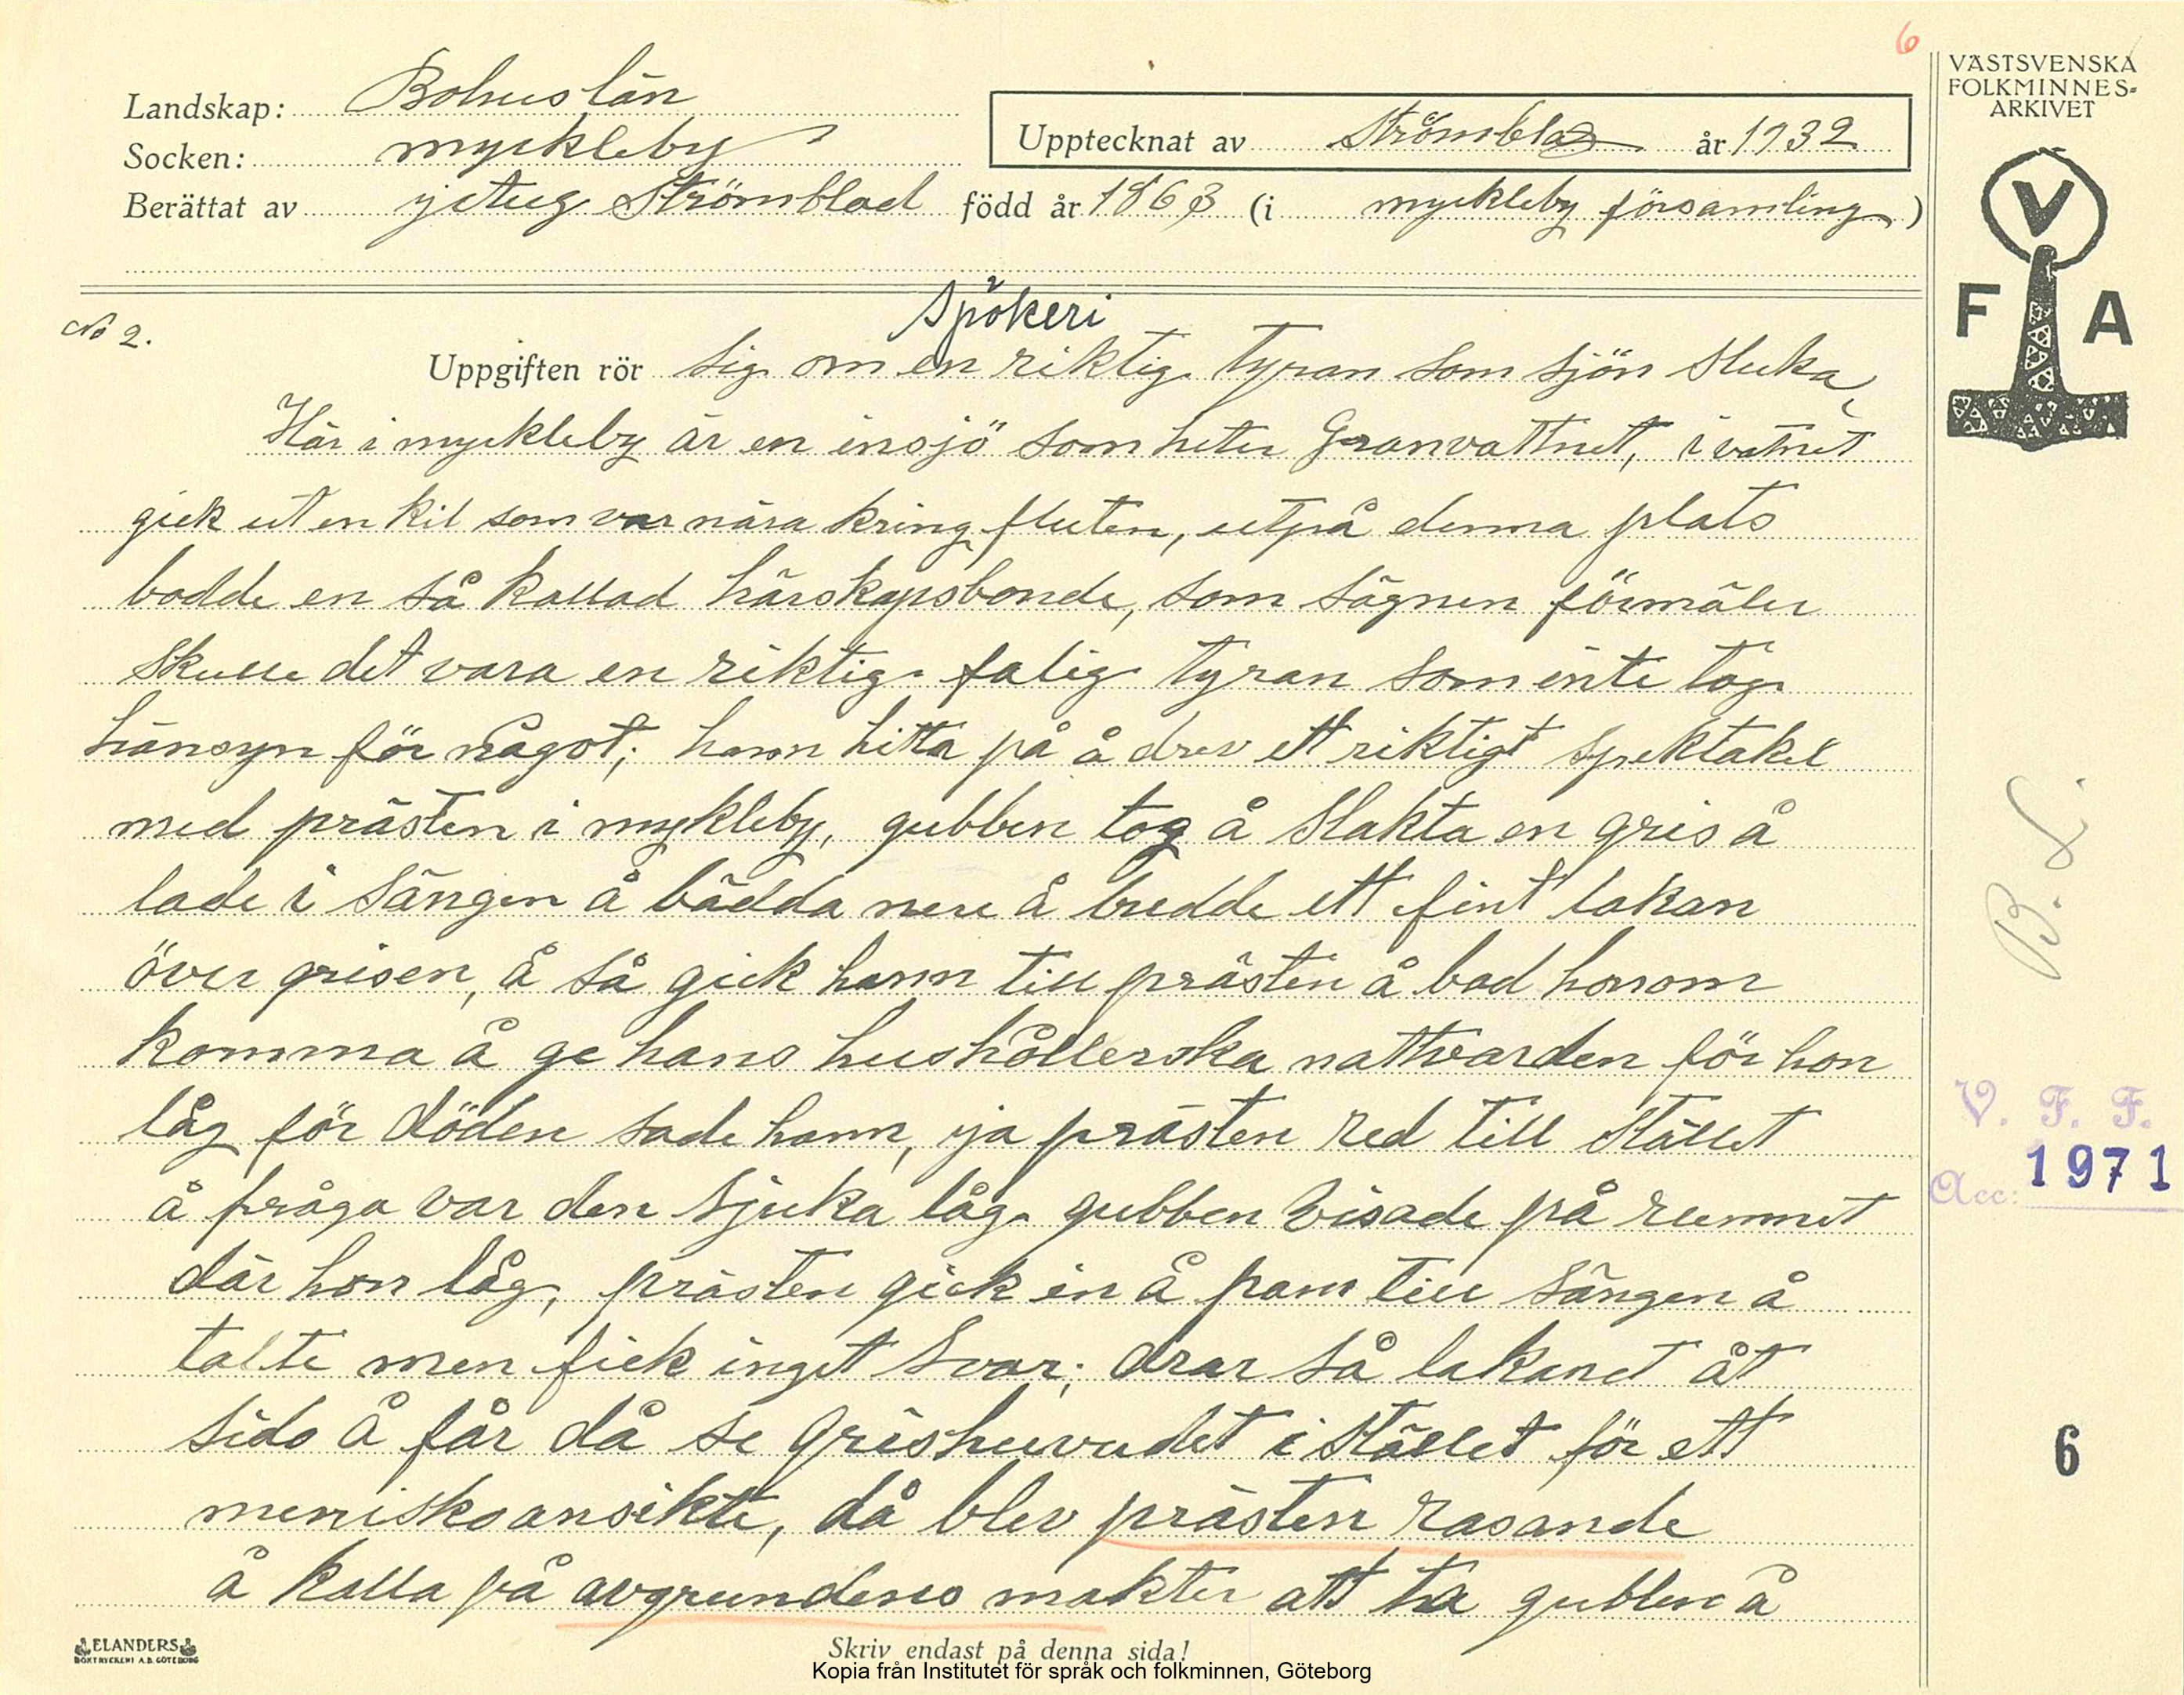 6
VÄSTSVENSKA
FOLKMINNES-
ARKIVET
Landskap: Bohuslän
Socken: myckleby
Upptecknat av Strömblad år 1932
Berättat av Strömblad född år 1863 (i myckleby församling)
V
F A
No 2.
Spökeri
Uppgiften rör sig om en riktig tyran som sjön sluka,
Här i myckleby är en insjö som heter Granvattnet, i vatnet
gick ut en kil som var nära kring fluten, utpå denna plats
bodde en så kallad härskapsbonde, som sägnen förmäler
skulle det vara en riktig falig tyran som inte tog
hänsyn för något; hann hitta på å drev ett riktigt spektakel
med prästen i mykleby, gubben tog å slakta en gris å
lade i sängen å bädda nere å bredde ett fint lakan
över grisen, å så gick hann till prästen å bad honom
komma å ge hans hushållerska nattvarden för hon
låg för döden sade hann, ja prästen red till stället
å fråga var den sjuka låg. gubben visade på rummet
där hon låg, prästen gick in å fram till sängen å
talte men fick inget svar; drar så lakanet åt
sido å får då se grishuvudet i stället för ett
meniskoansikte, då blev prästen rasande
å kalla på avgrundens makter att ta gubben å
B. L.
V. F. F.
Acc: 1971
6
ELANDERS
BOKTRYCKERI A.B. GÖTEBORG
Skriv endast på denna sida!
Kopia från Institutet för språk och folkminnen, Göteborg